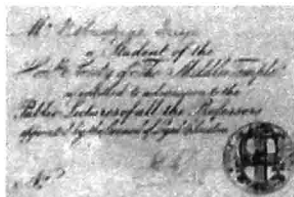 Mr
a Student of the
Society of the Middle Temple
is entitled to admission to the
Public Lectures of all the Professors
appointed by the Council of Legal Education
No